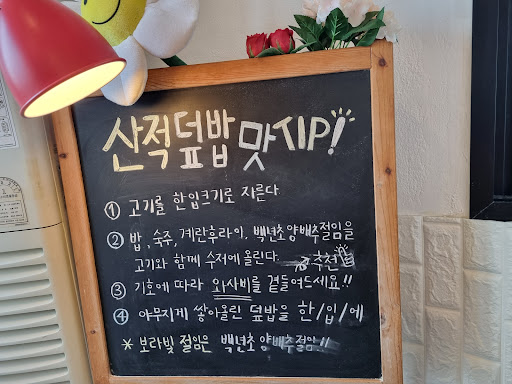 산적덮밥 맛TIP!
① 고기를 한입크기로 자른다
② 밥, 숙주, 계란후라이, 백년초양배추절임을
고기와 함께 수저에 올린다. 추천
③ 기호에 따라 와사비를 곁들여드세요!!
④ 야무지게 쌓아올린 덮밥을 한/입/에
* 보라빛 절임은 백년초 양배추절임!!